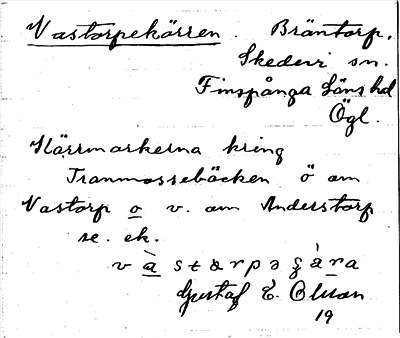 Vastorpekärren. Bräntorp,
Skedevi sn.
Finspånga läns hd
Ögl.
Kärrmarkerna kring
Tranmossebäcken ö om
Vastorp o v. om Anderstorp
se. ek.
Gustaf E. Olsson
19